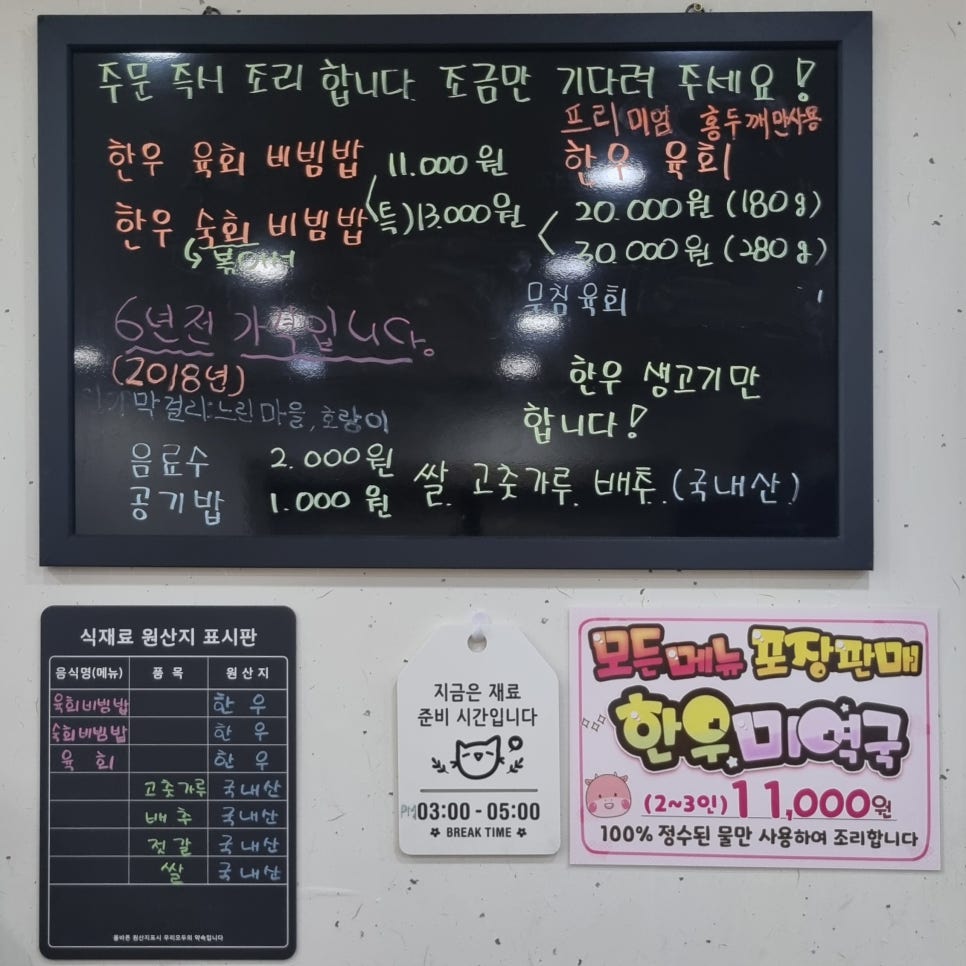 주문 즉시 조리 합니다. 조금만 기다려 주세요!
프리미엄 홍두깨만사용
한우 육회
한우 육회 비빔밥 11.000원
한우 숙회 비빔밥 (특)13.000원
↳볶아서
20.000원 (180g)
30.000원 (280g)
무침육회
6년전 가격입니다.
(2018년)
한우 생고기만
합니다!
막걸리:느린마을, 호랑이
음료수 2.000원
공기밥 1.000원
쌀. 고춧가루. 배추. (국내산)
식재료 원산지 표시판
음식명(메뉴) 품 목 원 산 지
육회비빔밥 한 우
숙회비빔밥 한 우
육 회 한 우
고춧가루 국내산
배 추 국내산
젓 갈 국내산
쌀 국내산
올바른 원산지표시 우리모두의 약속입니다
지금은 재료
준비 시간입니다
PM 03:00 - 05:00
BREAK TIME
모든메뉴 포장판매
한우미역국
(2~3인) 11,000원
100% 정수된 물만 사용하여 조리합니다